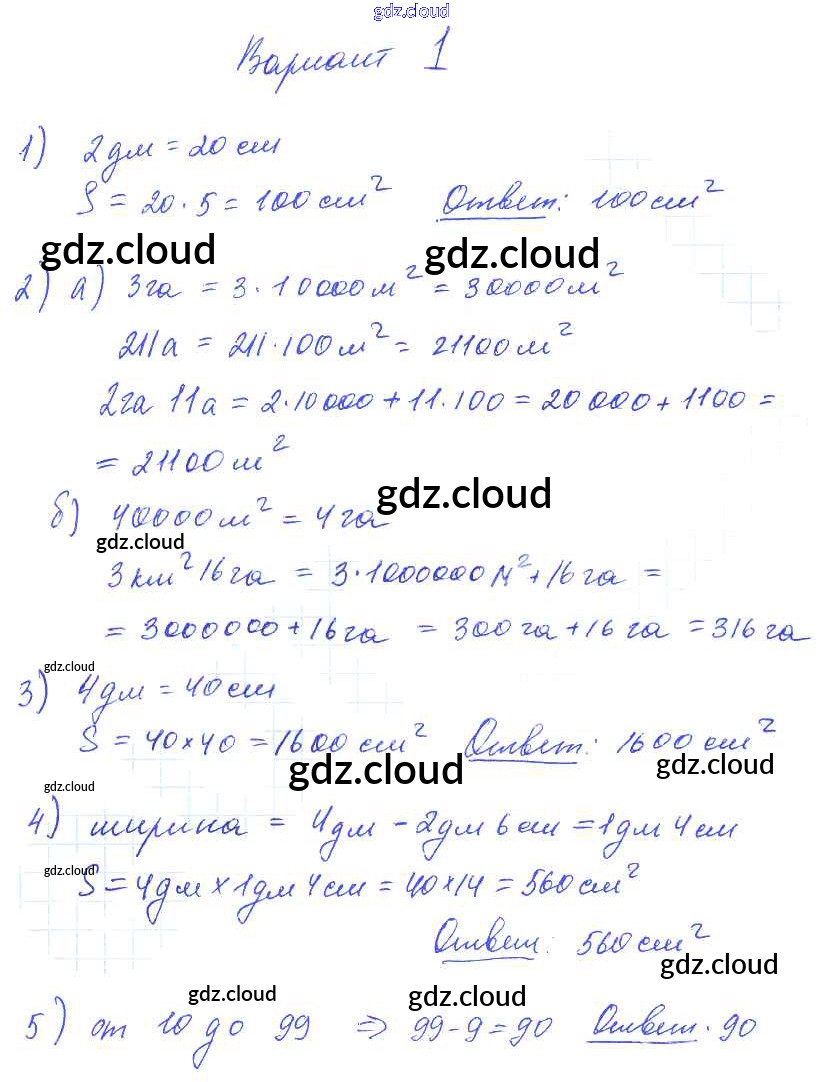 gdz.cloud
Вариант 1
1) 2дм = 20 см
S = 20 · 5 = 100 см² Ответ: 100 см²
gdz.cloud gdz.cloud
2) а) 3га = 3 · 10000 м² = 30000 м²
211а = 211 · 100 м² = 21100 м²
2га 11а = 2·10000 + 11·100 = 20 000 + 1100 =
= 21100 м²
gdz.cloud
б) 40000 м² = 4 га
gdz.cloud
3 км² 16 га = 3·1000000 м² + 16 га =
= 3000000 + 16 га = 300 га + 16 га = 316 га
gdz.cloud
3) 4дм = 40 см
S = 40 × 40 = 1600 см² Ответ: 1600 см²
gdz.cloud gdz.cloud
gdz.cloud
4) ширина = 4дм - 2дм 6 см = 1дм 4 см
gdz.cloud
S = 4дм × 1дм 4 см = 40 × 14 = 560 см²
Ответ: 560 см²
gdz.cloud gdz.cloud gdz.cloud
5) от 10 до 99 ⇒ 99 - 9 = 90 Ответ. 90